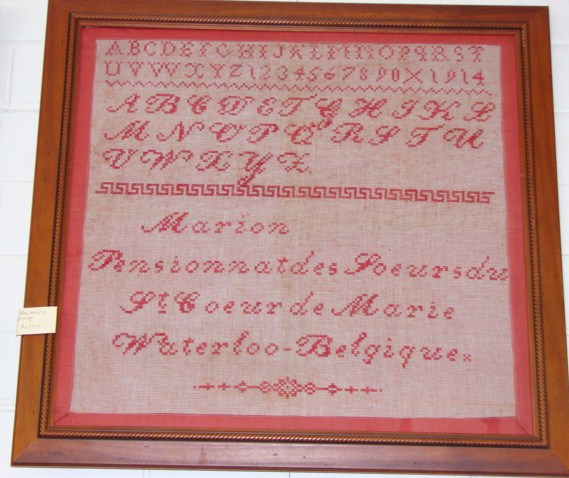 ABCDEFGHIJKLMNOPQRST
UVWXYZ1234567890X1914
ABCDEFGHIJKL
MNOPQRSTU
VWXYZ.
Marion
Pensionnatdes Soeursdu
St Coeur de Marie
Waterloo-Belgique